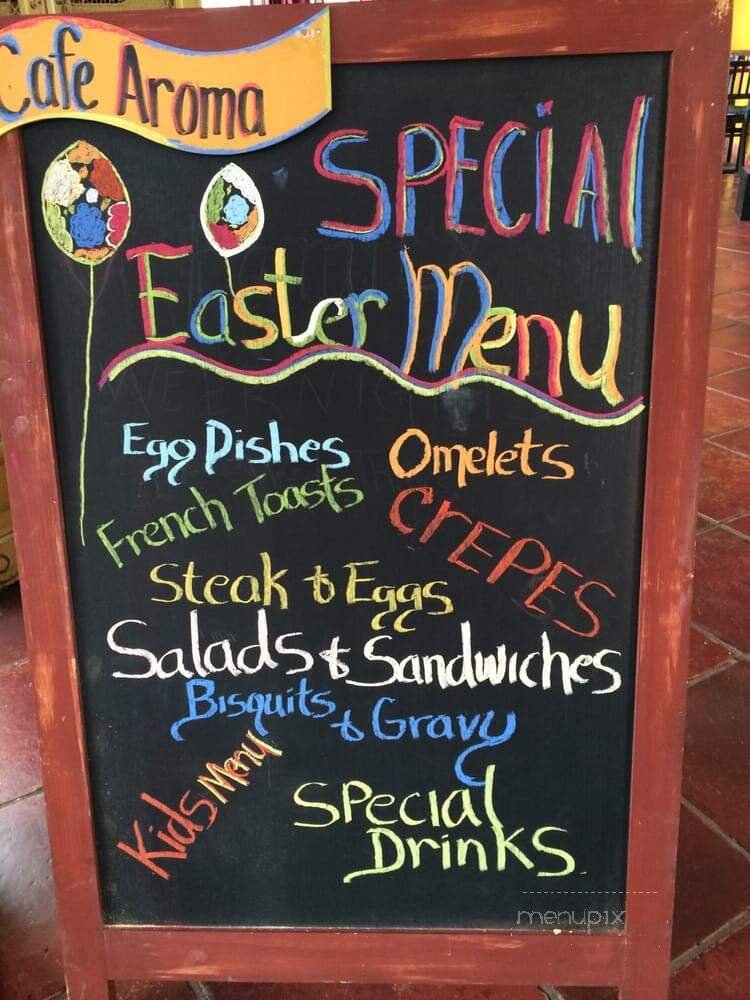 Cafe Aroma
SPECIAL
Easter Menu
Egg Dishes
Omelets
French Toasts
CREPES
Steak & Eggs
Salads & Sandwiches
Bisquits & Gravy
Kids Menu
Special
Drinks
menupix